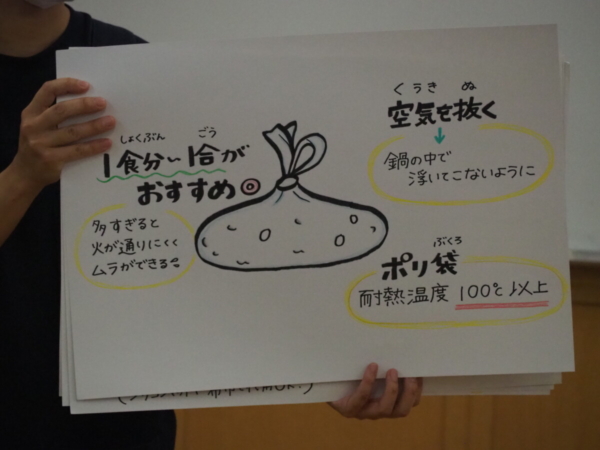 しょくぶん ごう
1食分〜1合が
おすすめ◎
多すぎると
火が通りにくく
ムラができる
くうき ぬ
空気を抜く
↓
鍋の中で
浮いてこないように
ぶくろ
ポリ袋
耐熱温度 100℃以上